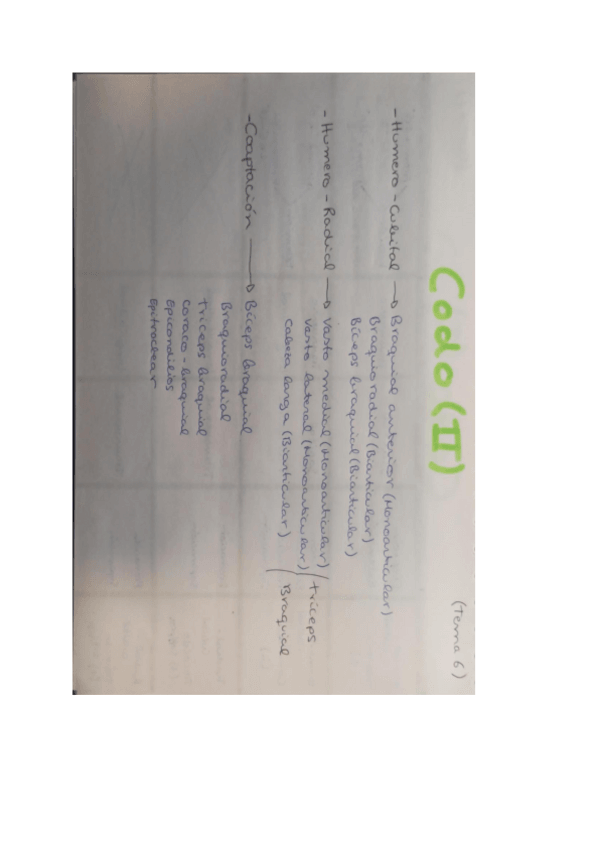 Codo (II)
(Tema 6)
- Humero - Cubital → Braquial anterior (Monoarticular)
Braquioradial (Biarticular)
Bíceps braquial (Biarticular)
- Humero - Radial → Vasto medial (Monoarticular)
Vasto lateral (Monoarticular)
Cabeza larga (Biarticular)
Tríceps
Braquial
- Coaptación → Bíceps braquial
Braquioradial
Tríceps braquial
Coraco - braquial
Epicondilios
Epitroclear